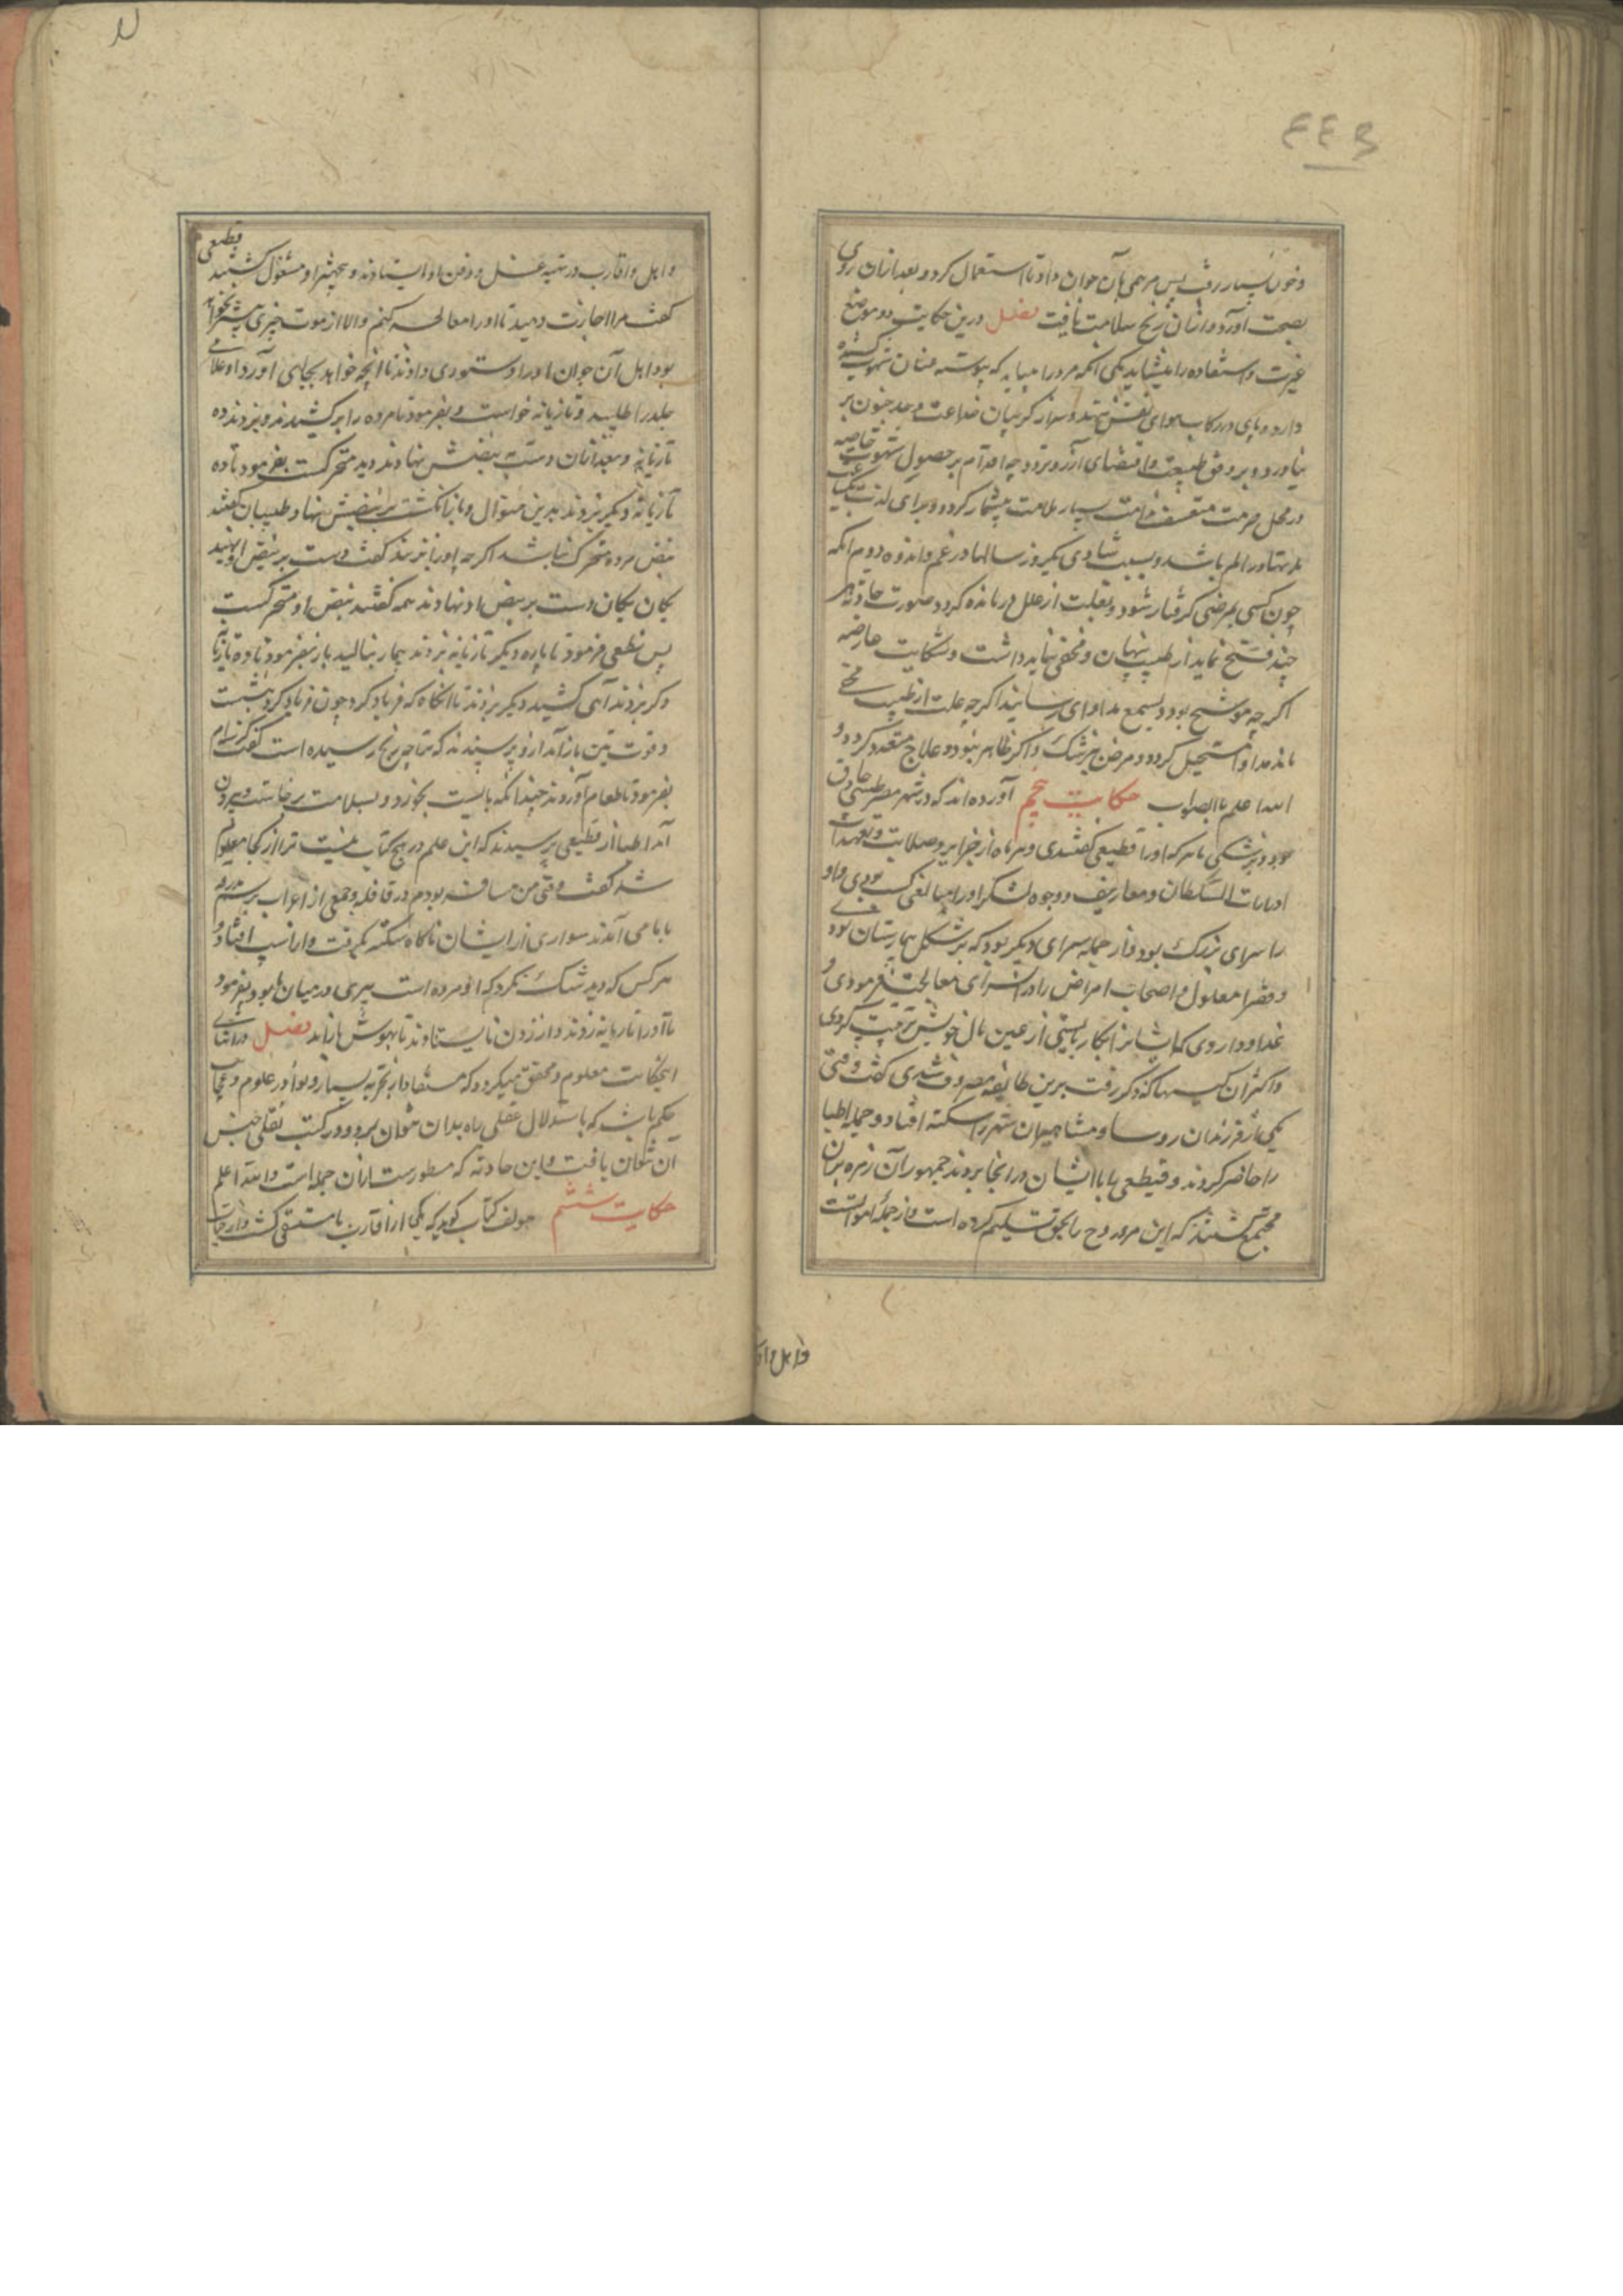 ٤٤٣
وخون بسیار رفت پس مرهمی بآن جوان داد تا استعمال کرد و بعد از آن روی
بصحت آورد و از آن رنج سلامت یافت فصل درین حکایت دو موضع
عبرت و استفاده را میشاید یکی آنکه مرد را میباید که پیوسته عنان شهوت کشیده
دارد و پای در رکاب هوای نفس ننهد و سر از گریبان خلاعت و جد جنون بر
نیاورد و بر وفق طبیعت و اقتضای آرزو چه اقدام بر حصول شهوت خاصه
در محل حرمت بسیار ملامت بیشمار گردد و برای لذت یک
مدتها در الم باشد و بسبب شادی یکروز سالها در غم و اندوه دوم آنکه
چون کسی بمرضی گرفتار شود و بعلت از علل درمانده گردد صورت حادثه هر
چند فضیح نماید از طبیب پنهان و مخفی نباید داشت و شکایت عارضه
اگرچه موشح بود بسمع مداوای رسانید اگرچه علت از طبیب مخفی
ماند مداوا مستحیل گردد و مرض بپزشک و اگر ظاهر نبود و علاج متعذر گردد و
الله اعلم بالصواب حکایت پنجم آورده‌اند که در شهر مصر طبیبی حاذق
بود و پزشکی ماهر که او را قطیعی گفتندی و هر ماه از جرایر و صلات و تعهدات
ادرارات السلطان و معاریف و وجوه لشکر او را مبالغی کسب بودی و او
را سرای بزرگ بود و از جمله سرای دیگر بود که بر شکل بیمارستان بود
و فقرا معلول و اصحاب امراض را در آن سرای معالجت فرمودی و
غذا و داروی که ایشانرا بکار بایستی از عین مال خویش ترتیب کردی
و اکثر آن کیسها که ذکر رفت برین طایفه مصروف شدی گفت وقتی
یکی از فرزندان روسا و مشاهیران شهر را سکته افتاد و جمله اطبا
را حاضر کردند و قطیعی با ایشان در آنجا بردند جمهور آن زمره بر آن
مجتمع گشتند که این مرد روح را بحق تسلیم کرده است و از جمله اموات است
واهل واق
و اهل و اقارب در تهیه غسل و دفن او ایستادند و بتجهیز او مشغول گشتند قطیعی
گفت مرا اجازت دهید تا او را معالجه کنم و الا از موت چیزی بیشتر نخواهد
بود اهل آن جوان او را دستوری دادند تا آنچه خواهد بجای آورد او غلامی
جلد را طلبید و تازیانه خواست و بفرمود تا مرده را برکشیدند و بزدند ده
تازیانه و بعد از آن دست به نبضش نهادند دید متحرک گشت بفرمود تا ده
تازیانه دیگر بزدند بدین منوال و باز انگشت بر نبضش نهاد و طبیبان گفتند
نبض مرده متحرک نباشد اگرچه او را بزنند گفت دست بر نبض او نهید
یکان یکان دست بر نبض او نهادند همه گفتند نبض او متحرک گشت
پس قطیعی فرمود تا پاره دیگر تازیانه بزدند بیمار بنالید باز بفرمود تا ده تازیانه
دگر بزدند آهی کشید دیگر بزدند تا آنگاه که فریاد کرد چون فریاد کرد بنشست
و قوت تن باز آمد از و پرسیدند که ترا چه رنج رسیده است گفت گرسنه‌ام
بفرمود تا طعام آوردند چندانکه بایست بخورد و بسلامت برخاست و بیرون
آمد اطبا از قطیعی پرسیدند که این علم در هیچ کتاب نیست ترا از کجا معلوم
شد گفت وقتی من مسافر بودم در قافله و جمعی از اعراب بدرقه
با ما می آمدند سواری از ایشان ناگاه سکته بگرفت و از اسب افتاد و
هر کس که دید شک نکرد که او مرده است پیری در میان ما بود بفرمود
تا او را تازیانه زدند و از زدن نایستادند تا بهوش باز آمد فصل در اثنای
اینحکایت معلوم و محقق میگردد که مستفاد از تجربه بسیار و نوادر علوم و عجایب
حکم باشد که باستدلال عقلی راه بدان نتوان برد و در کتب نقلی جنس
آن نتوان یافت و این حادثه که مسطورست از آن جمله است والله اعلم
حکایت ششم مولف کتاب گوید که یکی از اقارب ما مستسقی گشت و از حیات